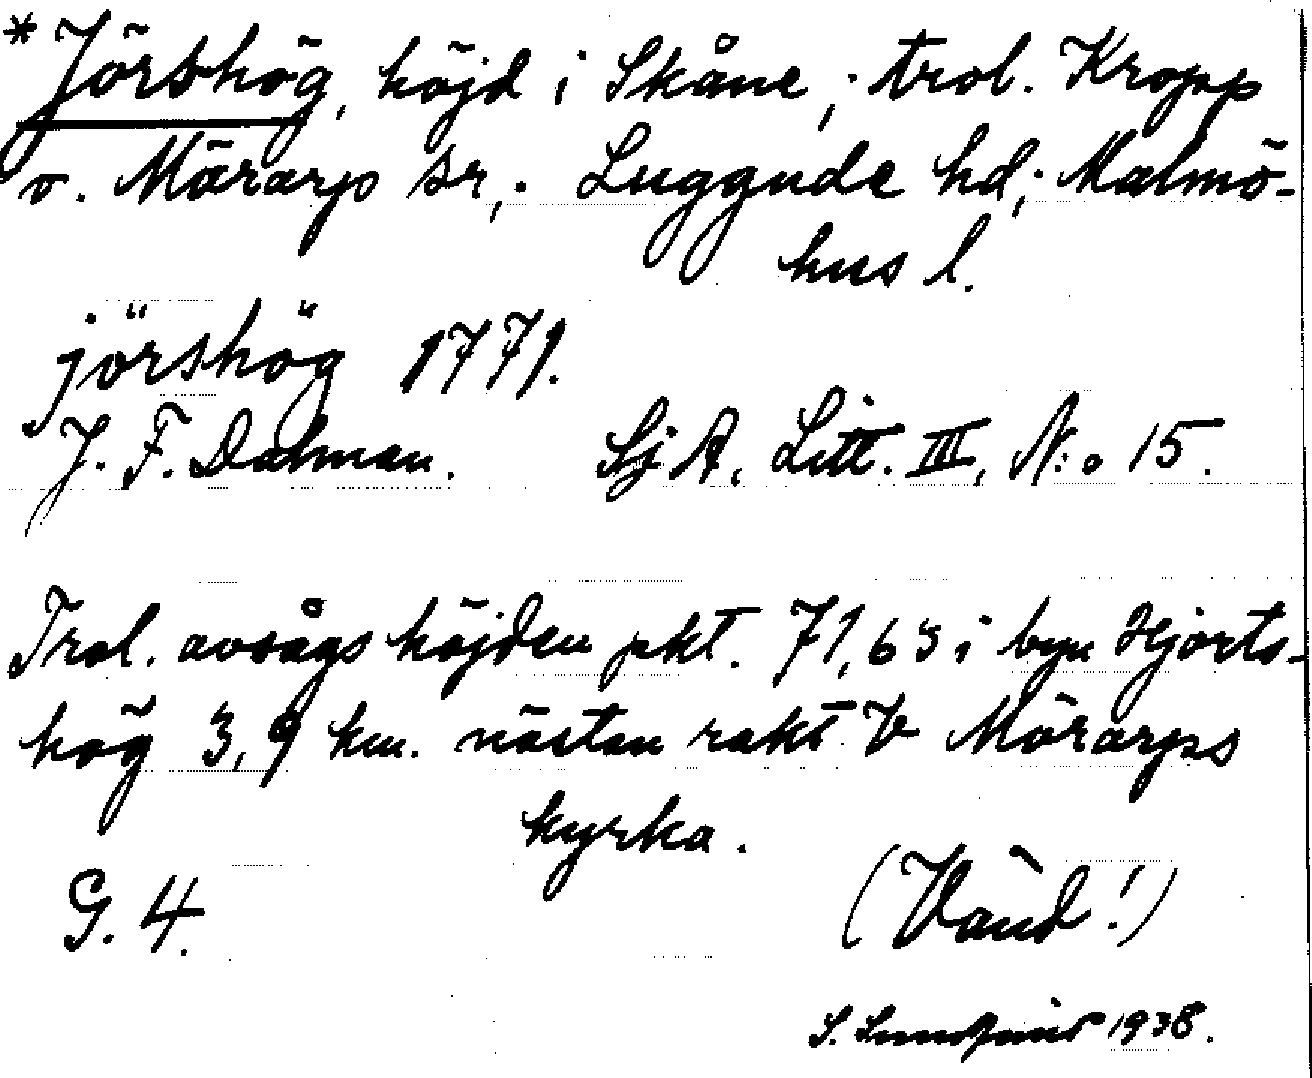 * Jörshög, höjd i Skåne; trol. Kropp
o. Mörarp sr; Luggude hd; Malmö-
hus l.
jörshög 1771.
J. F. Dahman. Sj A. Litt. III, N:o 15.
Trol. avsågs höjden pkt. 71,63 i byn Hjorts-
hög 3,9 km. nästan rakt V Mörarps
kyrka.
G. 4. (Vänd!)
S. 1938.